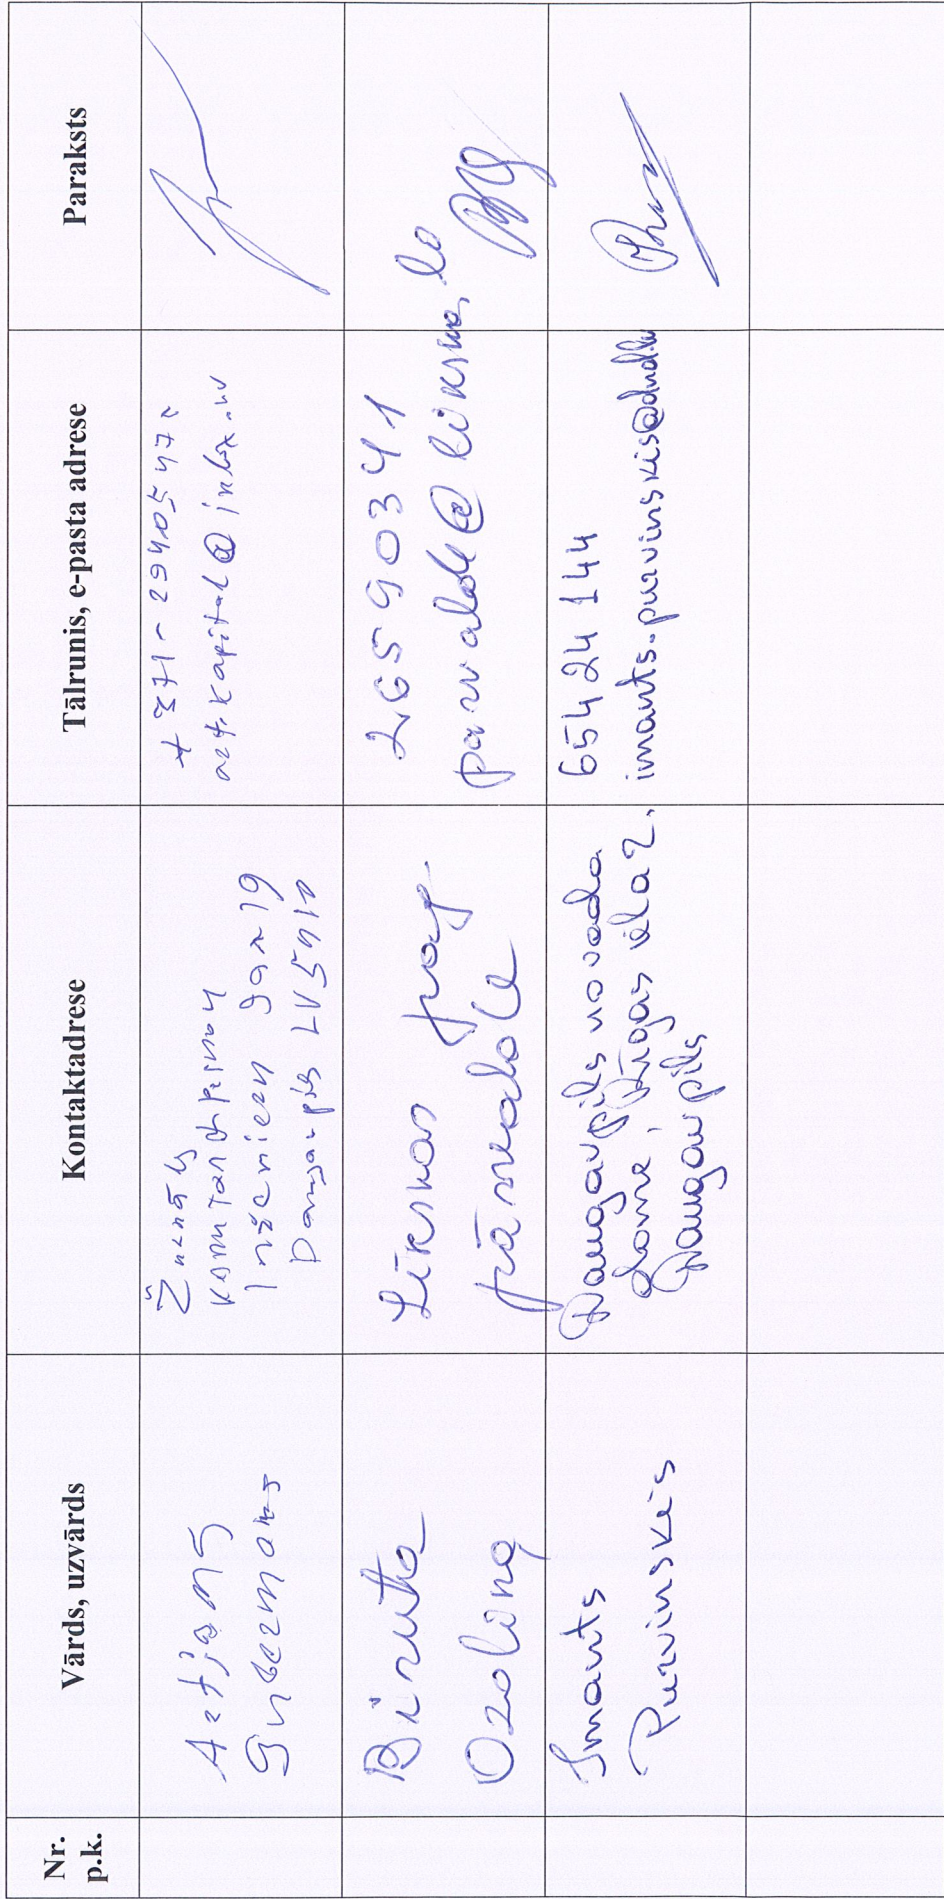 Nr.
p.k.
Vārds, uzvārds
Kontaktadrese
Tālrunis, e-pasta adrese
Paraksts
Artjoms
Guzermans
Inženieru 9a-19
LV5410
+371-2940547
Biruta
Ozoliņa
Līksnas pag.
pārvalde
26590341
parvalde@liksna.lv
Imants
Purvinskis
Daugavpils novada
Dome, Rīgas iela 2,
Daugavpils
65424144
imants.purvinskis@dnd.lv